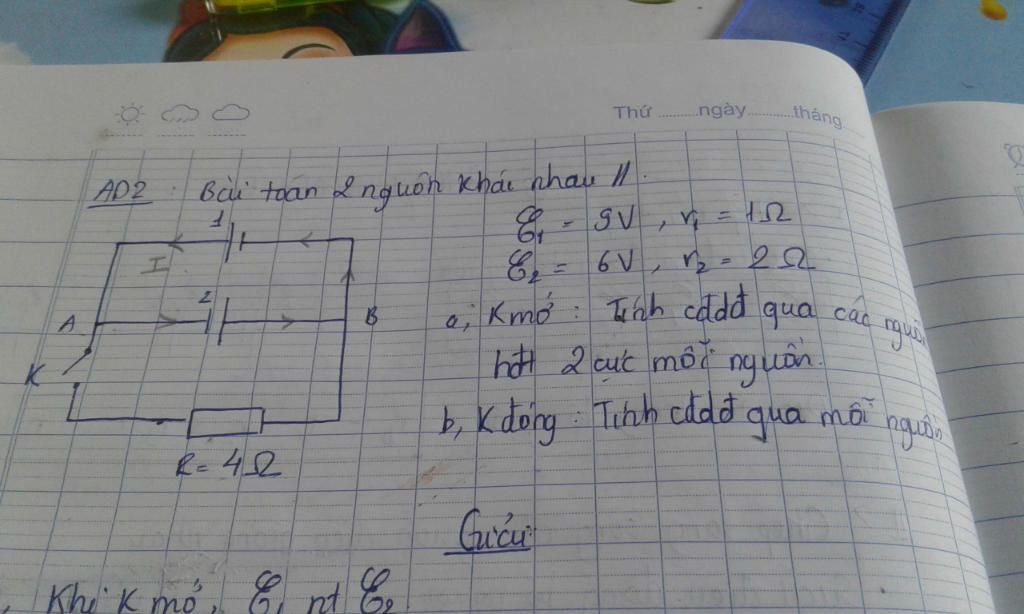 Thứ .........ngày..........tháng
AD2 : Bài toán 2 nguồn khác nhau //.
1
I
2
A
B
K
R = 4Ω
ℰ₁ = 9V , r₁ = 1Ω
ℰ₂ = 6V , r₂ = 2Ω
a, K mở : Tính cđdđ qua các nguồn
hđt 2 cực mỗi nguồn.
b, K đóng : Tính cđdđ qua mỗi nguồn
Khi K mở, ℰ₁ nt ℰ₂